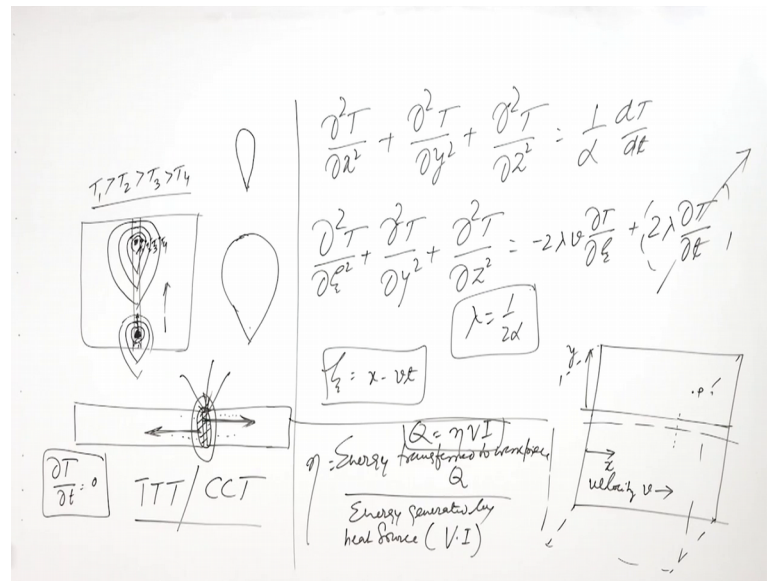 T₁>T₂>T₃>T₄
∂T/∂t = 0
TTT/CCT
∂²T/∂x² + ∂²T/∂y² + ∂²T/∂z² = 1/α dT/dt
∂²T/∂ξ² + ∂²T/∂y² + ∂²T/∂z² = -2λv ∂T/∂ξ + (2λ ∂T/∂t)
λ = 1/2α
ξ = x - vt
Q = ηVI
η = Energy transferred to workpiece
Q
Energy generated by
heat source (V·I)
y
.P
x
velocity v →